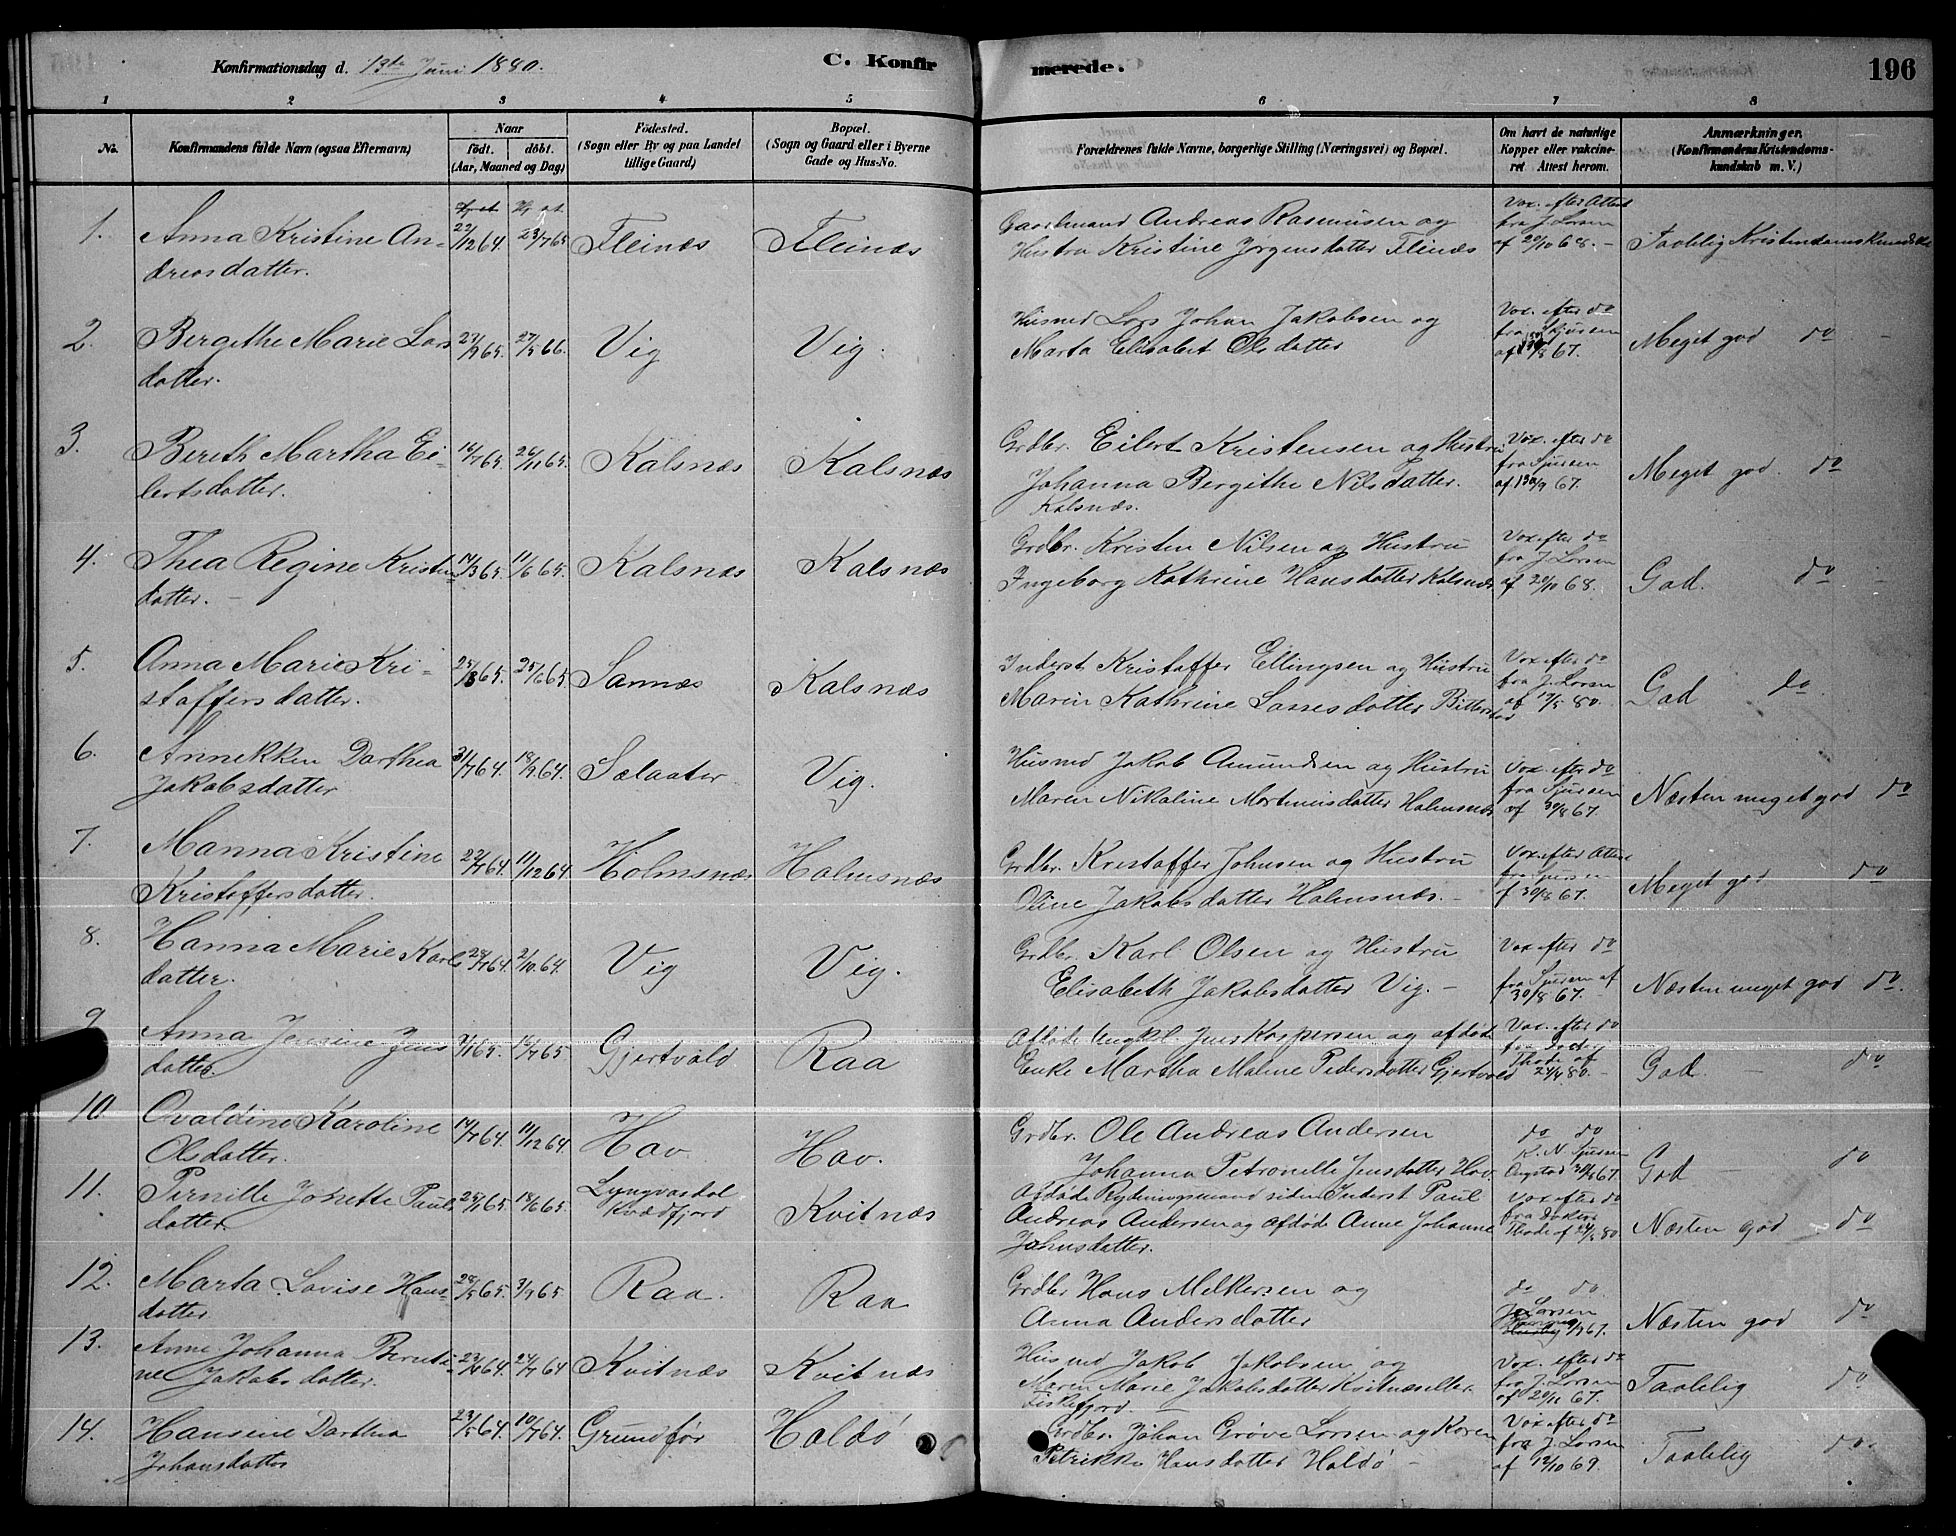 Konfirmationsdag d. 13de Juni 1880.
C. Konfirmerede.
196
1 2 3 4 5 6 7 8
No.
Konfirmandens fulde Navn (ogsaa Efternavn)
Naar
födt. döbt.
(Aar, Maaned og Dag)
Födested.
(Sogn eller By og paa Landet
tillige Gaard)
Bopæl.
(Sogn og Gaard eller i Byerne
Gade og Hus-No.
Forældrenes fulde Navne, borgerlige Stilling (Næringsvei) og Bopæl.
Om havt de naturlige
Kopper eller vakcine-
ret Attest herom.
Anmærkninger.
(Konfirmandens Kristendoms-
kundskab m. V.)
1. Anna Kristine An-
dreasdatter.
22/12 64. 23/7 65 Fleinæs Fleinæs
Gaardmand Andreas Rasmusen og
Hustru Kristine Jørgensdatter Fleinæs
Vax. efter Attest
fra J. Larsen
af 20/10 68. –
Taalelig Kristendomskundskab
2. Bergithe Marie Lars
datter.
27/9 65. 27/5 66. Vig Vig.
Husmd Lars Johan Jakobsen og
Marta Elisabet Olsdatter
Vax. efter do
fra Sjursen
af /8 67.
Meget god do –
3. Bereth Martha Ei-
lertsdatter.
16/7 65. 26/11 65. Kalsnæs Kalsnæs
Grdbr. Eilert Kristensen og Hustru
Johanna Bergithe Nilsdatter.
Kalsnæs.
Vax. efter do
fra Sjursen
af 13/9 67.
Meget god. do
4. Thea Regine Kristens
datter. –
14/3 65. 11/6 65. Kalsnæs Kalsnæs
Grdbr. Kristen Nilsen og Hustru
Ingeborg Kathrine Hansdatter Kalsnæs
Vax. efter do
fra J. Larsen
af 20/10 68.
God. do –
5. Anna Marie Kri-
staffersdatter.
25/3 65. 25/6 65. Sannæs Kalsnæs
Inderst Kristaffer Ellingsen og Hustru
Maren Kathrine Lassesdatter Bitterstad
Vax efter do
fra J. Larsen
af 17/5 80.
God do
6. Annekken Darthea
Jakobsdatter
31/7 64. 18/9 64. Sælaater Vig.
Husmd Jakob Amundsen og Hustru
Maren Nikoline Mortensdatter Holmsnæs
Vax. efter do
fra Sjursen
af 30/8 67.
Næsten meget god do
7. Manna Kristine
Kristoffersdatter.
22/7 64. 11/12 64 Holmsnæs Holmsnæs
Grdbr. Kristoffer Johnsen og Hustru
Oline Jakobsdatter Holmsnæs. –
Vax efter Attest
fra Sjursen
af 30/8 67.
Meget god do
8. Hanna Marie Karls
datter.
28/7 64. 2/10 64. Vig Vig.
Grdbr. Karl Olsen og Hustru
Elisabeth Jakobsdatter Vig. –
Vax efter do
fra Sjursen af
30/8 67.
Næsten meget god do.
9 Anna Jensine Jens
datter
3/1 65. 16/7 65 Gjertvold Raa
Afdøde Ungkl. Jens Kaspersen og afdøde
Enke Martha Maline Pedersdatter Gjertvold
Vax. efter do
fra Doktor
Thode af
24/4 80. –
God. – do
10. Ovaldine Karoline
Olsdatter.
14/7 64. 11/12 64. Hov Hov.
Grdbr. Ole Andreas Andersen
Johanna Petronelle Jensdatter Hov.
do do
K. N. Sjursen
Ongstad 30/8 67.
God – do
11. Pernille Johette Pauls
datter
25/1 65. 18/6 65. Lyngvasdal
Kvædfjord Kvitnæs
Afdøde Rydningsmand siden Inderst Paul
Andreas Andersen og afdøde Anne Johanne
Johnsdatter.
Vax efter do
fra Doktor
Thode af 24/4 80
Næsten god do
12. Marta Lovise Hans-
datter
28/5 65. 3/9 65 Raa. Raa
Grdbr Hans Melkersen og
Anna Andersdatter
do do.
J. Larsen
/9 67.
Næsten god do
13. Anne Johanna Bernti-
ne Jakobsdatter.
22/4 64. 24/7 64 Kvitnæs Kvitnæs
Husmd Jakob Jakobsen og
Maren Marie Jakobsdatter Kvitnæs eller
Fiskefjord. –
Vax. efter do
fra J. Larsen
af 20/11 67.
Taalelig do
14. Hansine Darthea
Johansdatter
23/5 64. 10/7 64. Grundfør Haldø
Grdbr. Johan Grøve Larsen og Karen
Petrikke Hansdatter Haldø –
Vax efter do
fra J. Larsen
af 12/10 69.
Taalelig do.